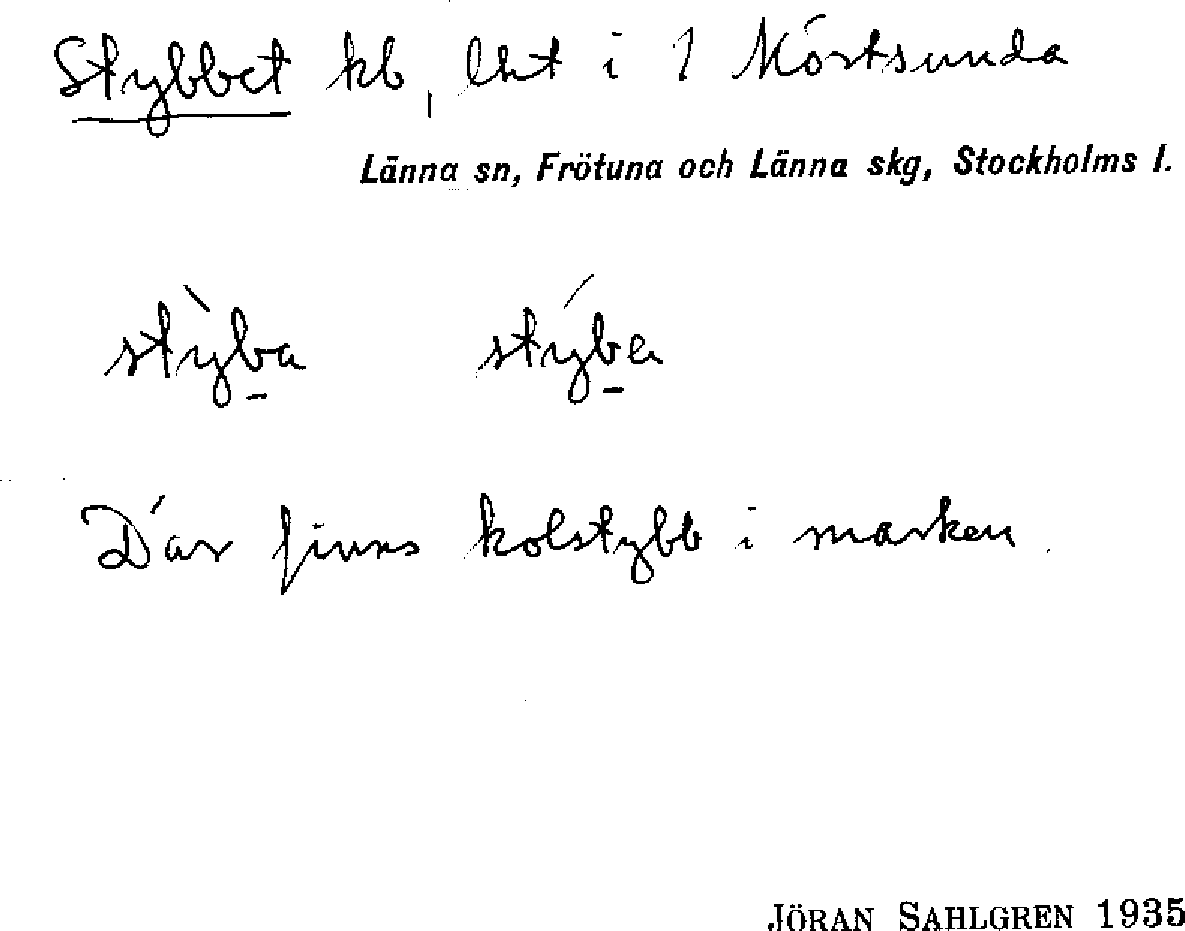 Stybbet kb, lht i 1 Mörtsunda
Länna sn, Frötuna och Länna skg, Stockholms l.
stỳba stýba
Där finns kolstybb i marken.
JÖRAN SAHLGREN 1935